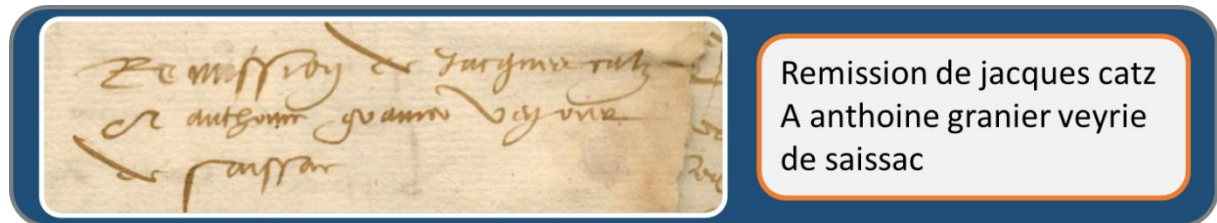 Remission de jacques catz
A anthoine granier veyrie
de saissac
Remission de jacques catz
A anthoine granier veyrie
de saissac